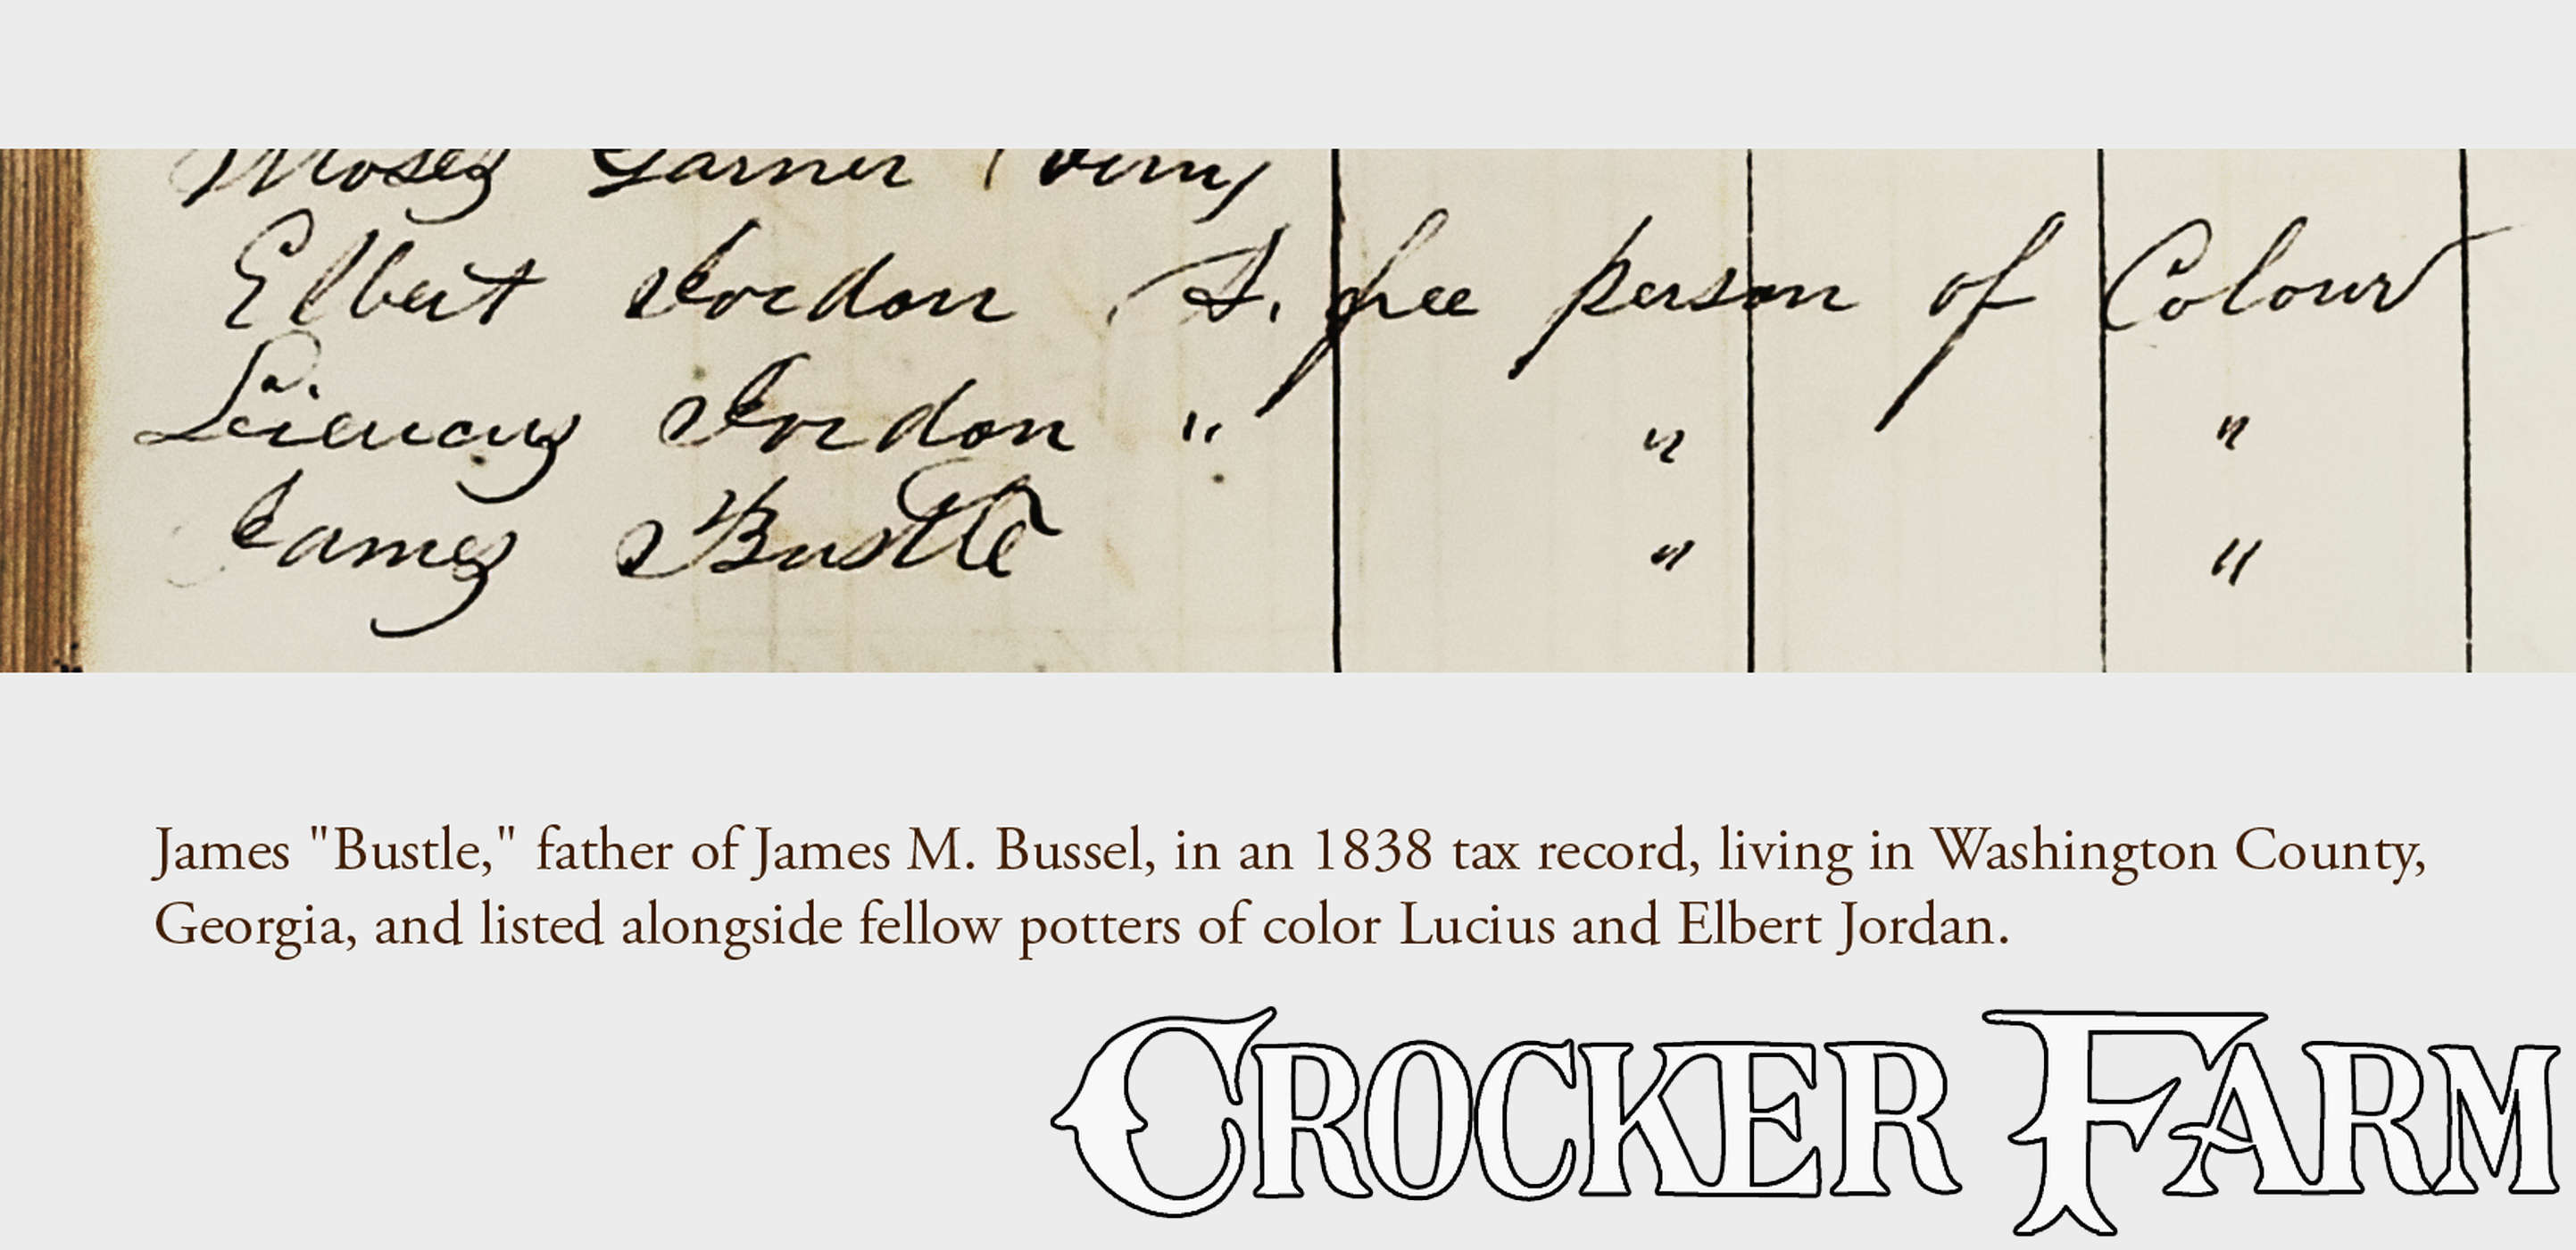 Moses Garner
Elbert Jordan A. free person of Colour
Jordan " " "
James Bustle " "
James "Bustle," father of James M. Bussel, in an 1838 tax record, living in Washington County,
Georgia, and listed alongside fellow potters of color Lucius and Elbert Jordan.
CROCKER FARM